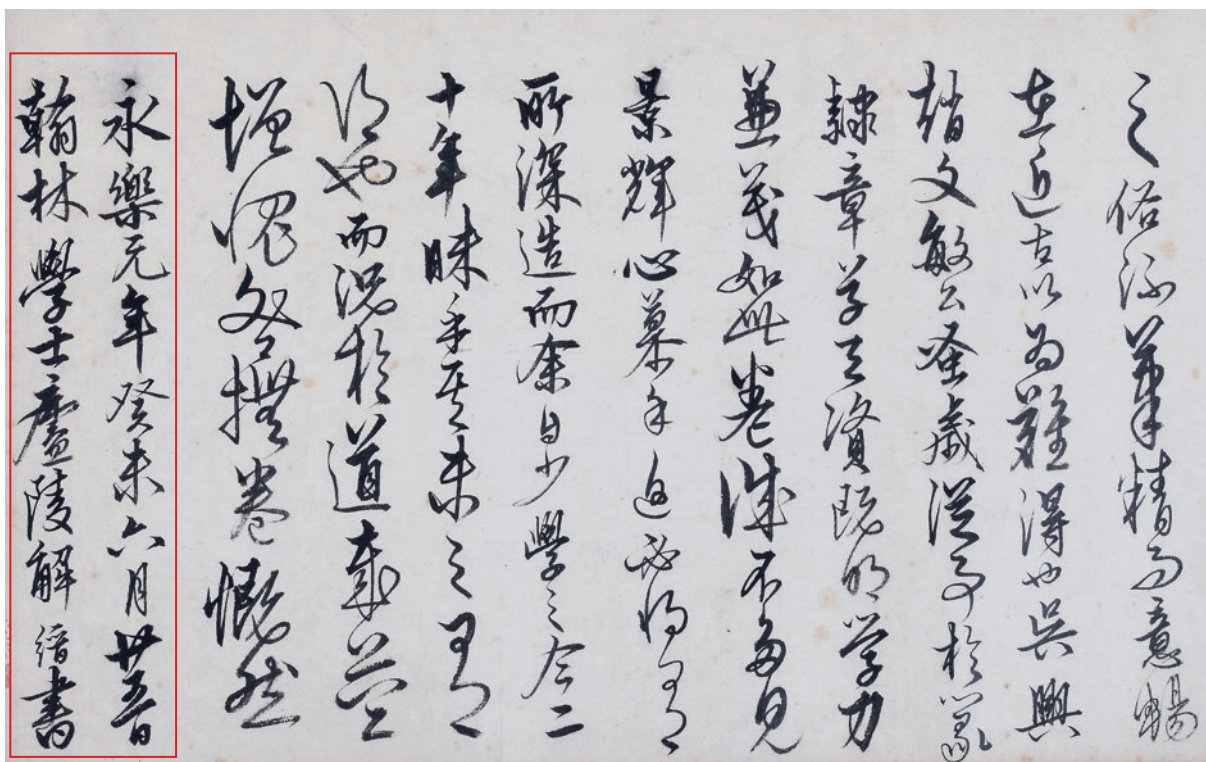 之俗流筆精而意暢
在近古以爲難得也吳興
趙文敏公蚤歲從事於篆
隸章草天資既明學力
兼茂如此卷誠不多見
景輝心慕手追必將有
所深造而余自少學之今二
十年昧乎其未之有
得也而況於道哉益
增愧
撫卷慨然
永樂元年癸未六月廿五日
翰林學士廬陵解縉書